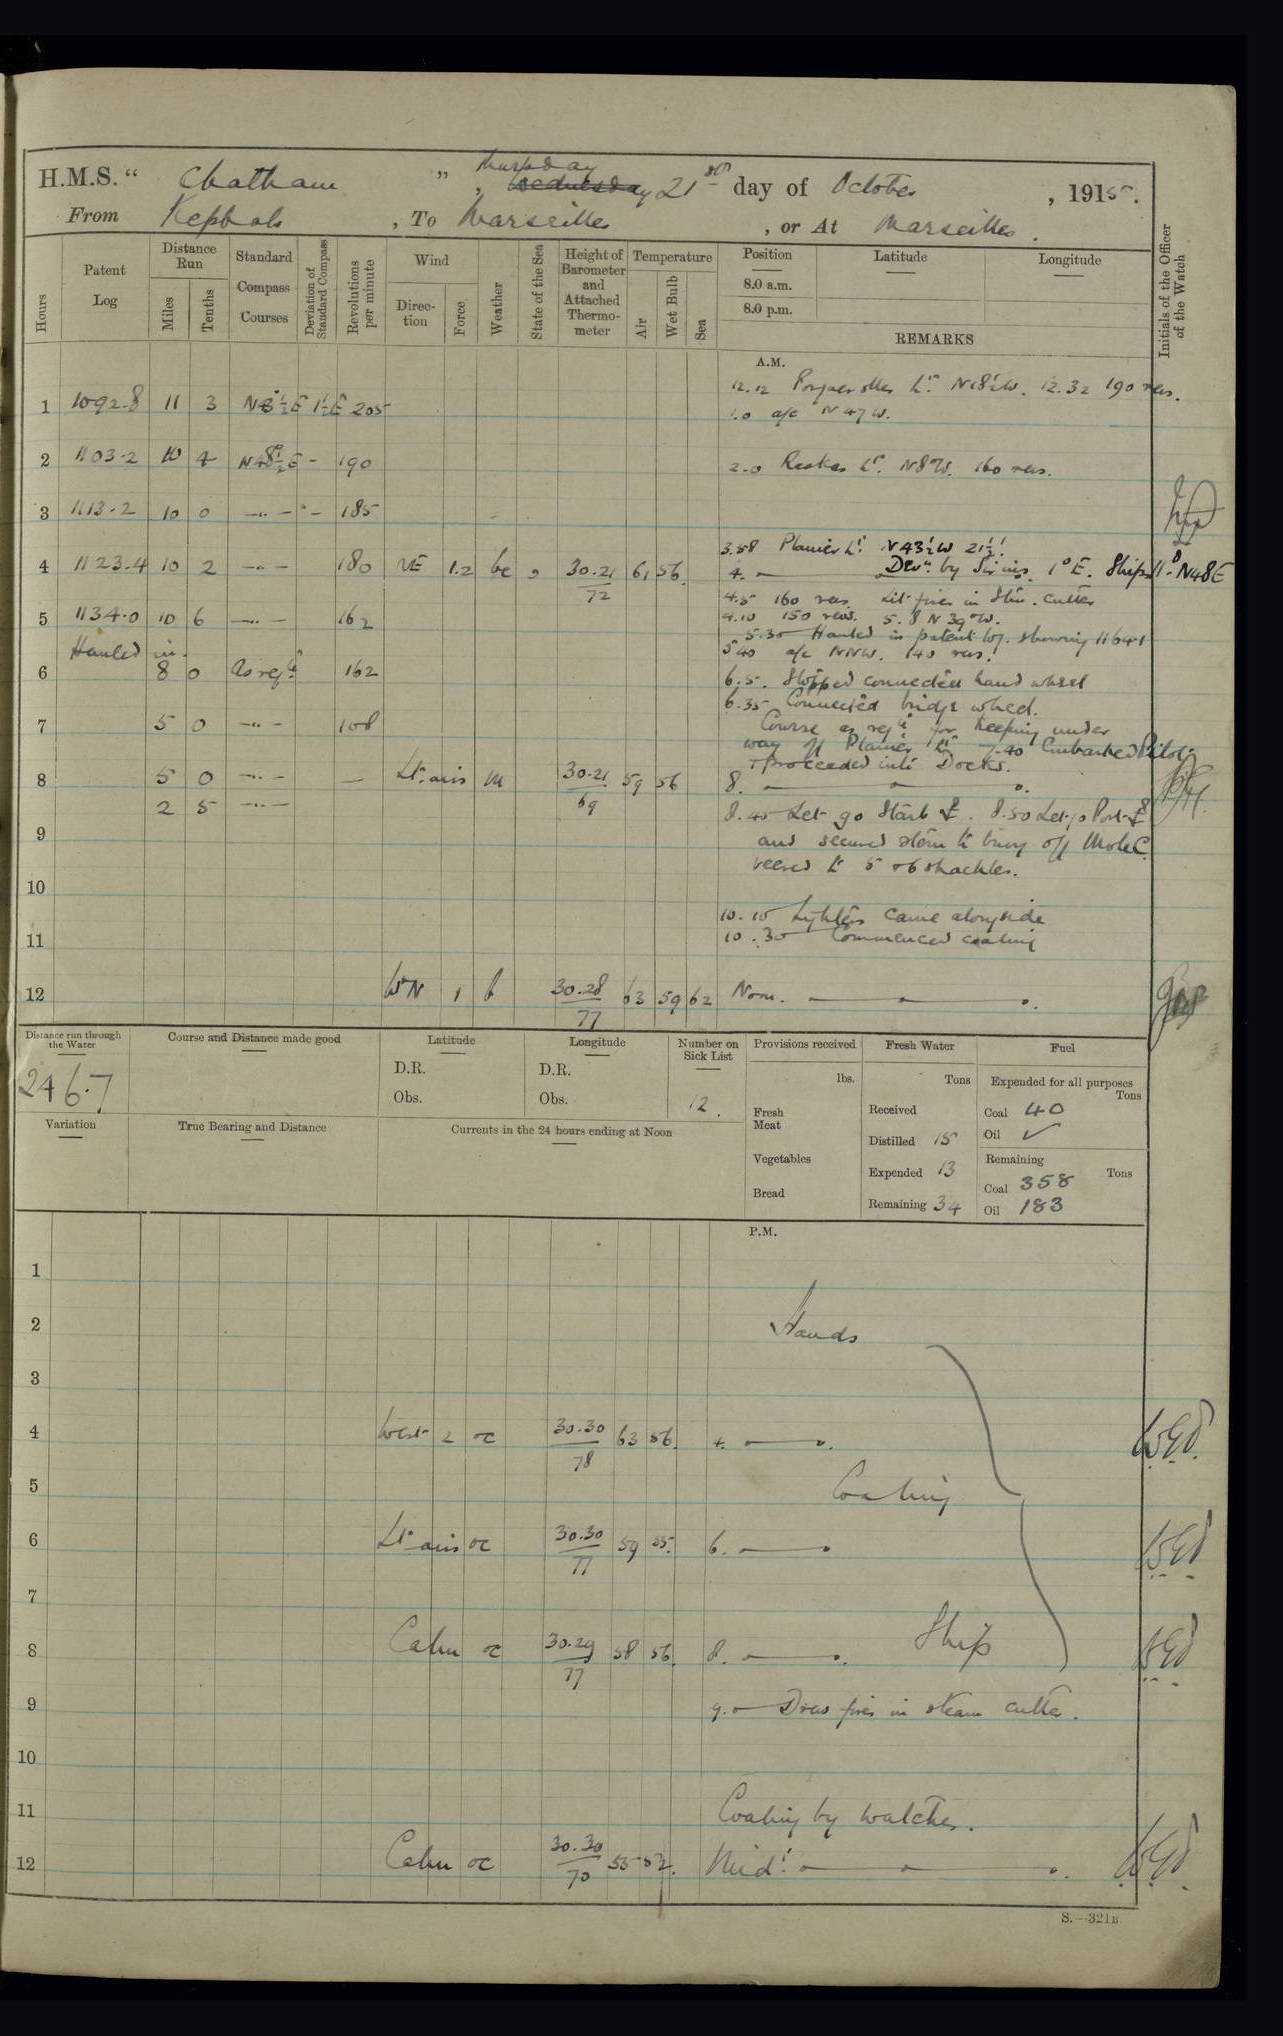 H.M.S. “ Chatham ” , Thursday Wednesday 21st day of October , 1915.
From Kephalo , To Marseilles , or At Marseilles .
Hours
Patent Log
Distance Run
Miles
Tenths
Standard Compass Courses
Deviation of Standard Compass
Revolutions per minute
Wind
Direction
Force
Weather
State of the Sea
Height of Barometer and Attached Thermometer
Temperature
Air
Wet Bulb
Sea
Position
Latitude
Longitude
8.0 a.m.
8.0 p.m.
REMARKS
Initials of the Officer of the Watch
A.M.
12.12 Porquerolles Lt. N18½W. 12.32 190 revs.
1 1092.8 11 3 1½E 205
1.0 a/c N47W.
2 1103.2 10 4 N48½E - 190
2.0 Lt. N8°W. 160 revs.
3 1113.2 10 0 —"— - 185
3.58 Planier Lt. N43½W 21½'
4 1123.4 10 2 —"— 180 NE 1.2 bc 30.21/72 61 56
4. Devn. by Sirius. 1°E. Ships Hd N48E
4.5 160 revs. Lit fires in Stm. cutter
5 1134.0 10 6 —"— 162
4.10 150 revs. 5.8 N39°W.
5.30 Hauled in patent log. showing 1164.1
Hauled in.
5.40 a/c NNW. 140 revs.
6 8 0 As reqd. 162
6.5. Stopped connected hand wheel
6.35 Connected bridge wheel.
7 5 0 —"— 108
Course as reqd. for keeping under
way off Planier Lt. 7.40 Embarked Pilot
& proceeded into Docks.
8 5 0 —"— — Lt. airs m 30.21/69 59 56
8.
2 5 —"—
8.45 Let go Starb ⚓. 8.50 Let go Port ⚓
9
and secured stern to buoy off Mole C.
veered to 5 & 6 shackles.
10
10.10 Lighters came alongside
11
10.30 Commenced coaling
12 W'N 1 b 30.28/77 63 59 62 Noon.
Distance run through the Water
246.7
Course and Distance made good
Latitude
D.R.
Obs.
Longitude
D.R.
Obs.
Number on Sick List
12.
Provisions received
lbs.
Fresh Meat
Vegetables
Bread
Fresh Water
Tons
Received
Distilled 15
Expended 13
Remaining 34
Fuel
Expended for all purposes
Tons
Coal 40
Oil ✓
Remaining
Tons
Coal 358
Oil 183
Variation
True Bearing and Distance
Currents in the 24 hours ending at Noon
P.M.
1
2 Hands
3
4 West 2 oc 30.30/78 63 56 4.
5 Coaling
6 Lt. airs oc 30.30/77 59 55 6.
7
8 Calm oc 30.29/77 58 56 8. Ship
9 9.0 Drew fires in steam cutter.
10
11 Coaling by watches.
12 Calm oc 30.30/70 55 52. Midt.
S.—321B